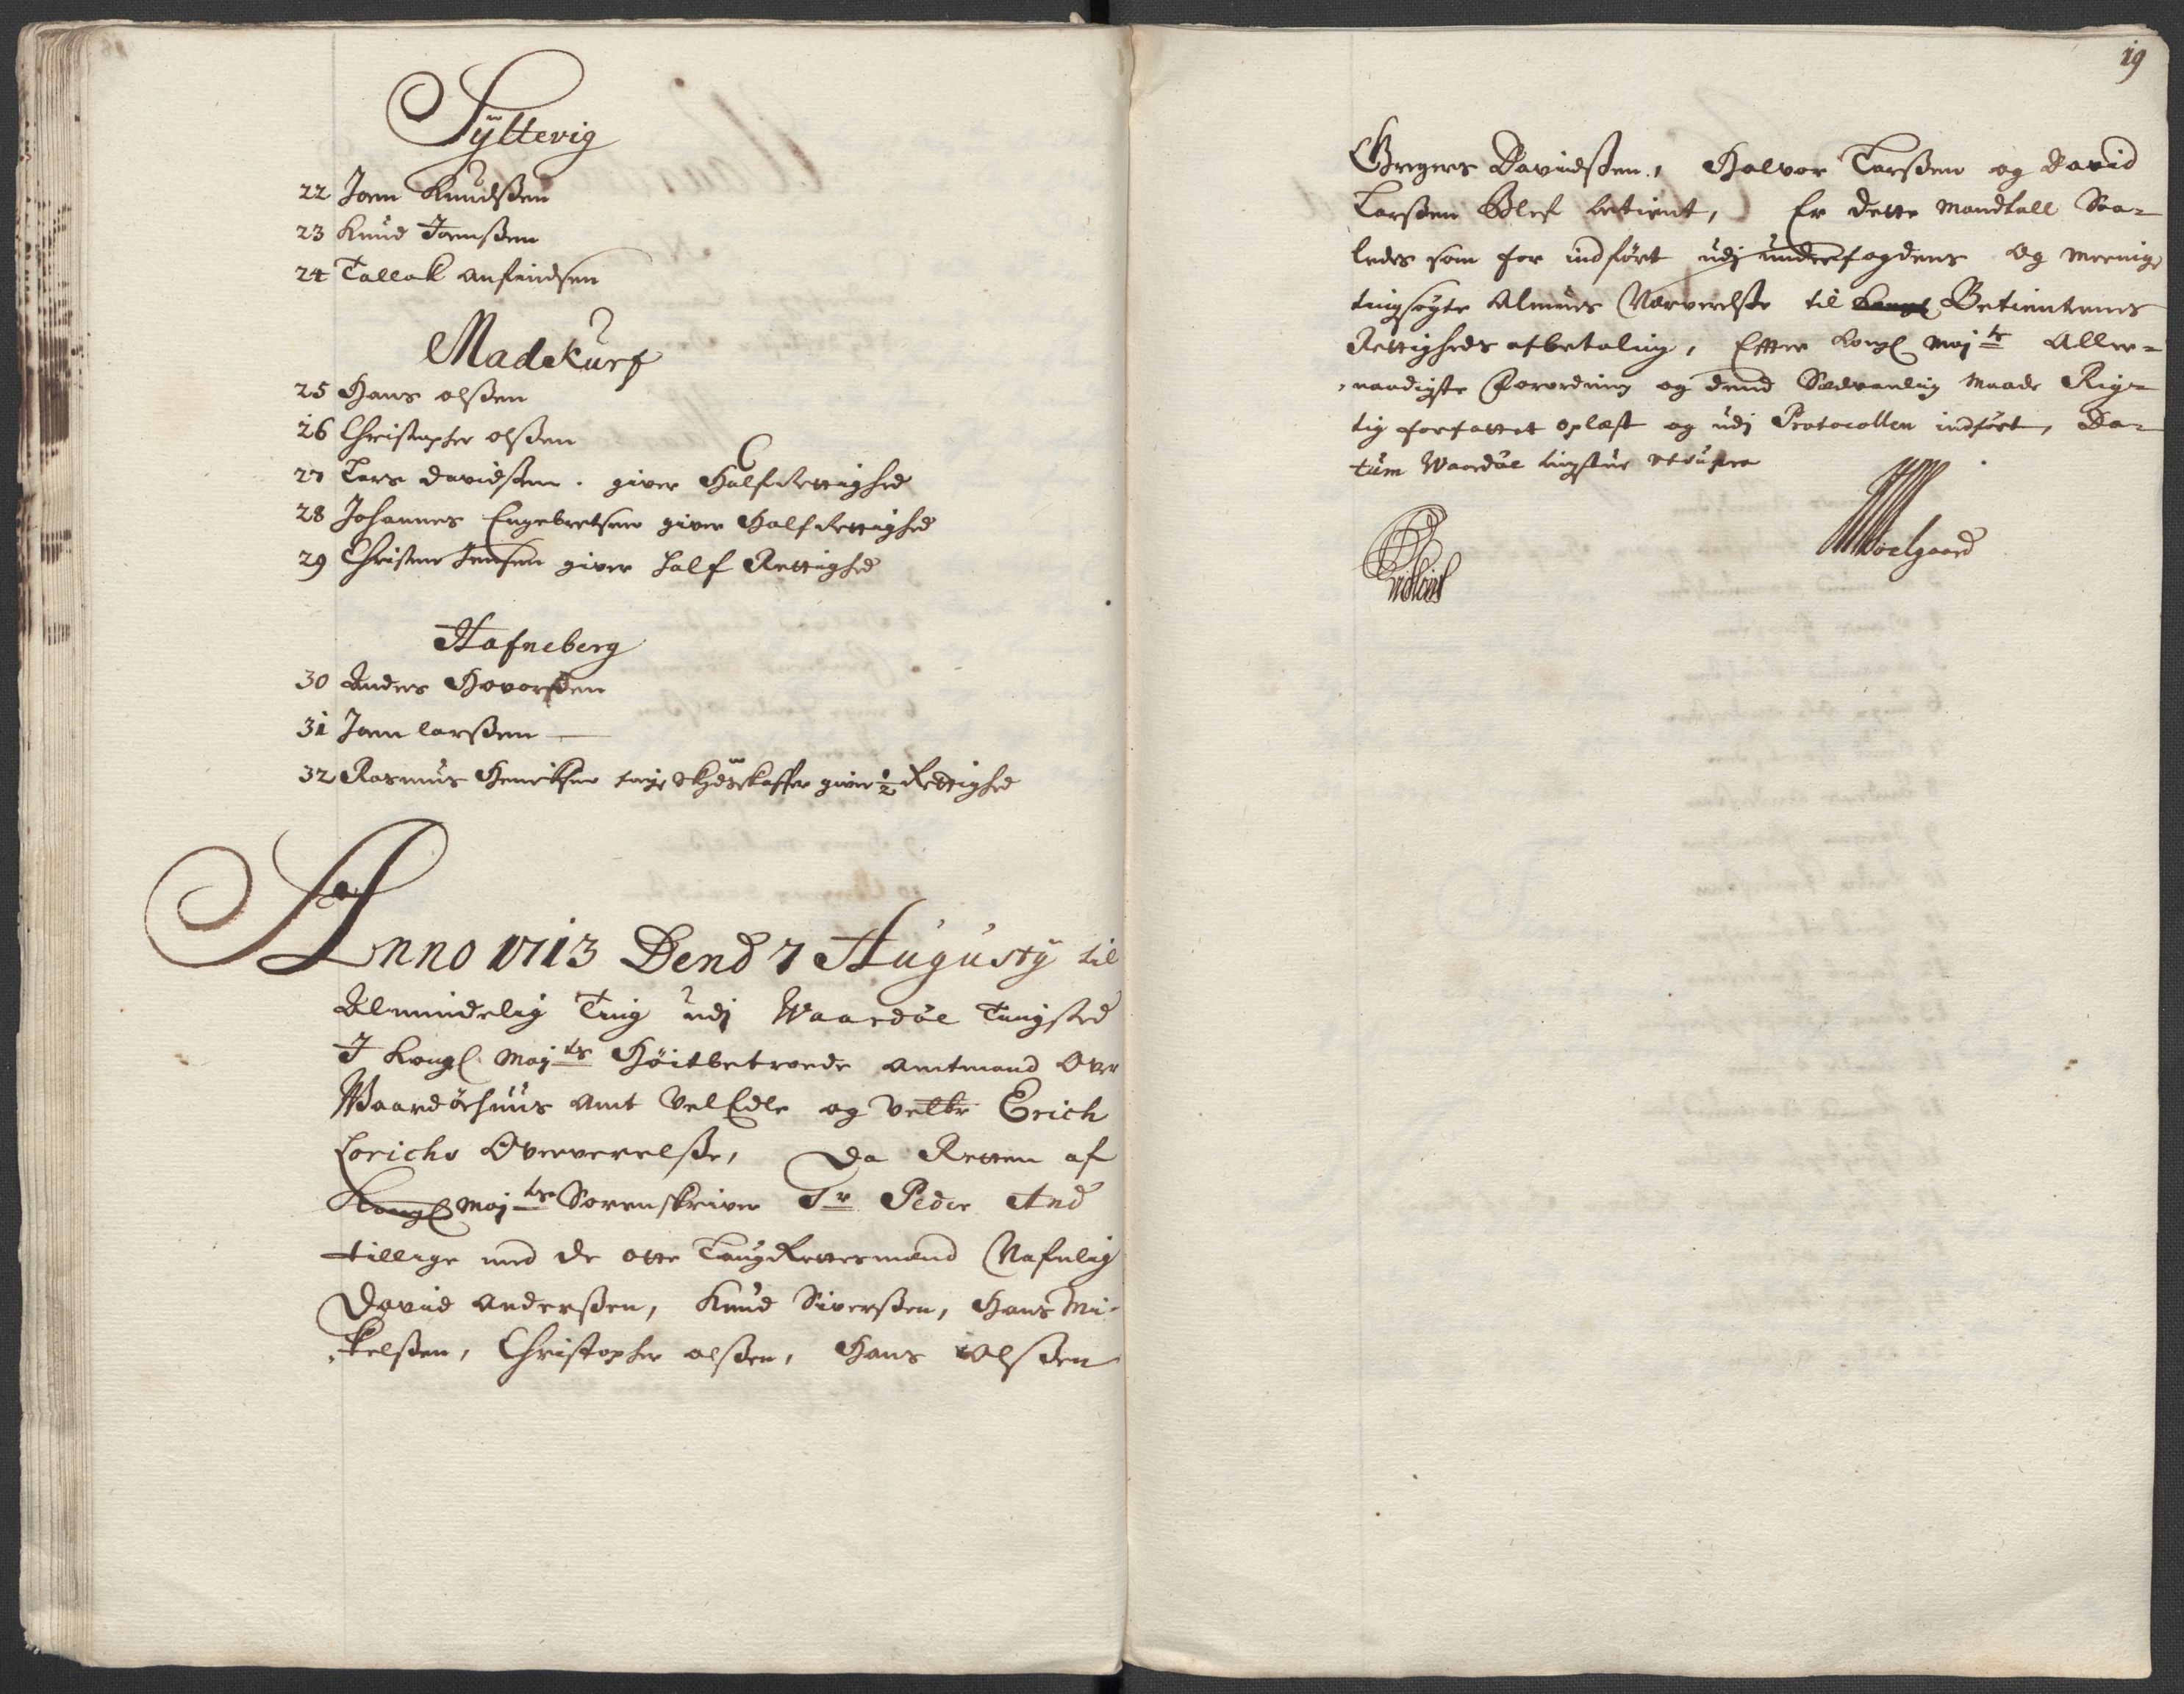 Syltevig
22 Joen Knudsßen
23 Knud Joensßen
24 Tallak Anfindsen
Madekurf
25 Hans olsßen
26 Christopher olsßen
27 Lars Davidsßen . giver Half Rettighed
28 Johannes Engebretsen giver Half Rettighed
29 Christen Jensen giver half Rettighed
Hafneberg
30 Anders Hovorsßen
31 Joen larsßen
32 Rasmus Henriksen giver ½ Rettighed
Anno 1713 Dend 7 Augusty til
Almindelig Ting udj Waardøe Tingsted
J Kongl. Maj:ts Høitbetroede Amtmand Over
Waardøehuus Amt VelEdle og Velbr Erich
Lorichs Oververelsße, Da Retten af
Kongl Maj:ts Sorenskriver Sr Peder And
tillige med de otte LaugRettesmænd Nafnlig
David Andersßen, Knud Siversßen, Hans Mi-
kelsßen, Christopher olsßen, Hans Olsßen
19
Gregers Davidsßen, Halvor Larsßen og David
Larsßen Blef betient, Er dette Mandtall Saa-
ledes som for indført udj underfogdens Og Meenige
tingsøgte Almues Nærverelsße til Kongl Betienternes
Rettigheds afbetaling, Efter Kongl Maj:ts Aller-
naadigste Forordning og dend Sædvanlig Maade Rig-
tig forfattet oplæst og udj Protocollen indført, Da-
tum Waardøe tingstue ut supra
Noelgaard